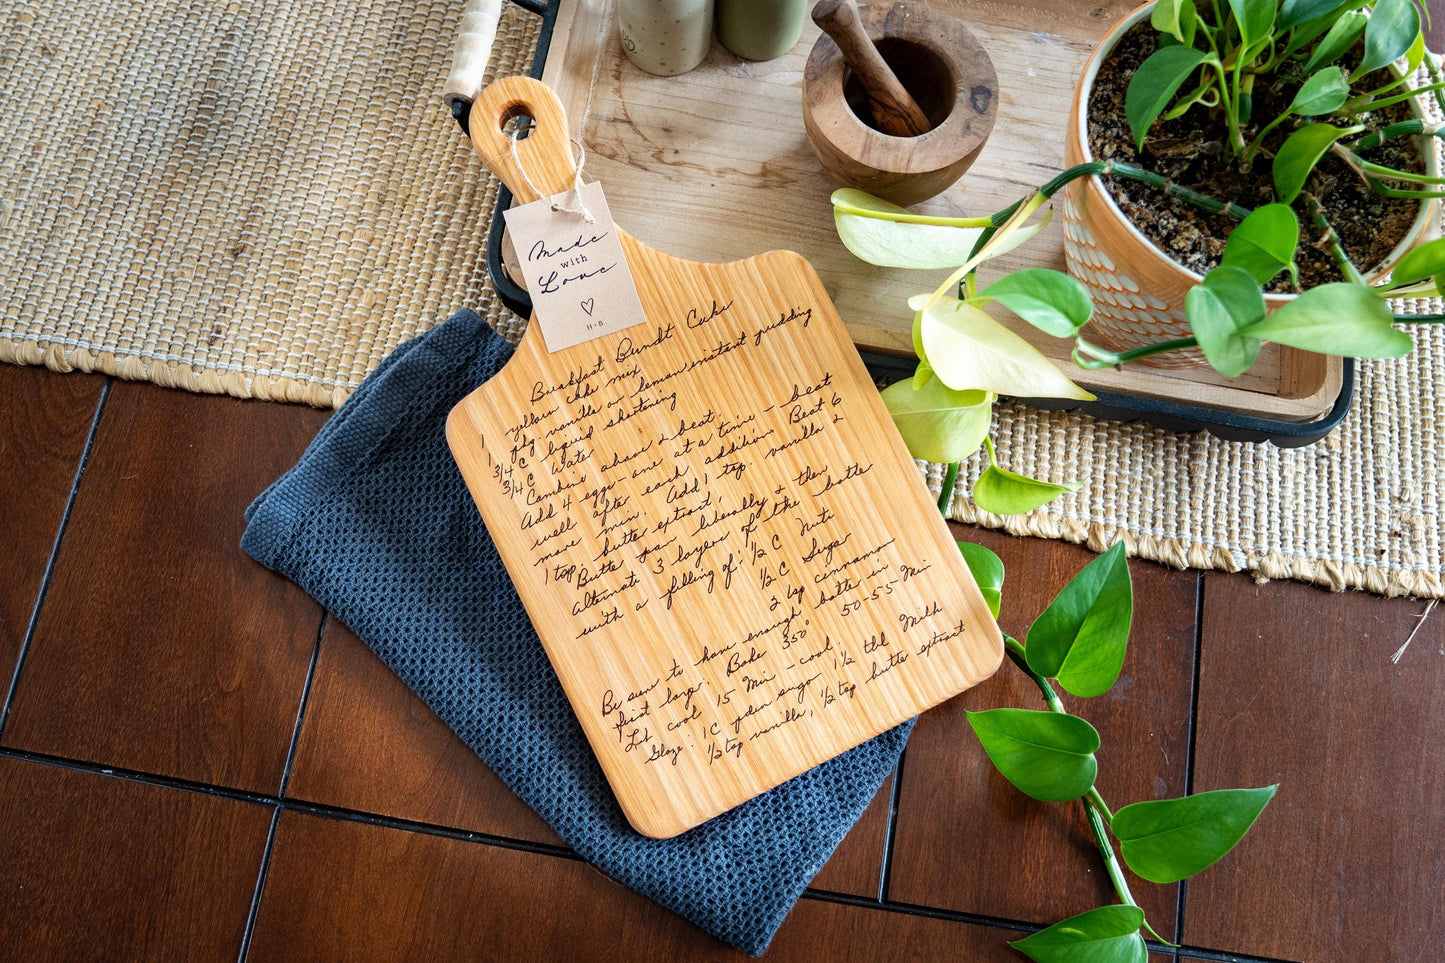 Made
with
Love
H-B
Breakfast Bundt Cake
1 yellow cake mix
1 pkg vanilla or lemon instant pudding
3/4 C liquid shortening
3/4 C Water
Combine above & beat.
Add 4 eggs - one at a time - beat
well after each addition Beat 6
more min. Add 1 tsp. vanilla &
1 tsp butter extract.
Butter pan liberally & then
alternate 3 layers of the batter
with a filling of: 1/2 C Nuts
1/2 C Sugar
2 tsp cinnamon
Be sure to have enough batter in
first layer. Bake 350° 50-55 Min
Let cool 15 Min - cool.
Glaze: 1 C pdr sugar 1 1/2 tbl Milk
1/2 tsp vanilla, 1/2 tsp butter extract